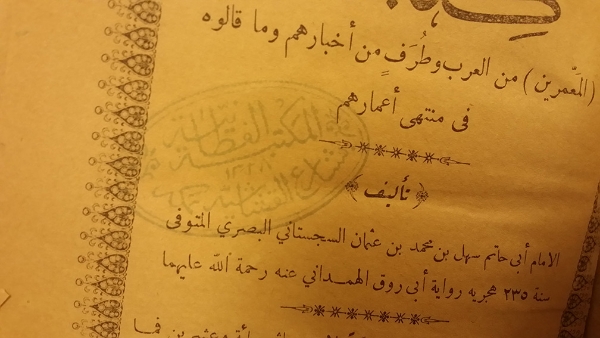 كتاب
(المعّمرين) من العرب وطُرَفٍ من أخبارهم وما قالوه
فى منتهى أعمارهم
﴿ تأليف ﴾
الامام أبى حاتم سهل بن محمد بن عثمان السجستاني البصري المتوفى
سنة ٢٣٥ هجريه رواية أبى روق الهمداني عنه رحمة الله عليهما
وعشرين فما